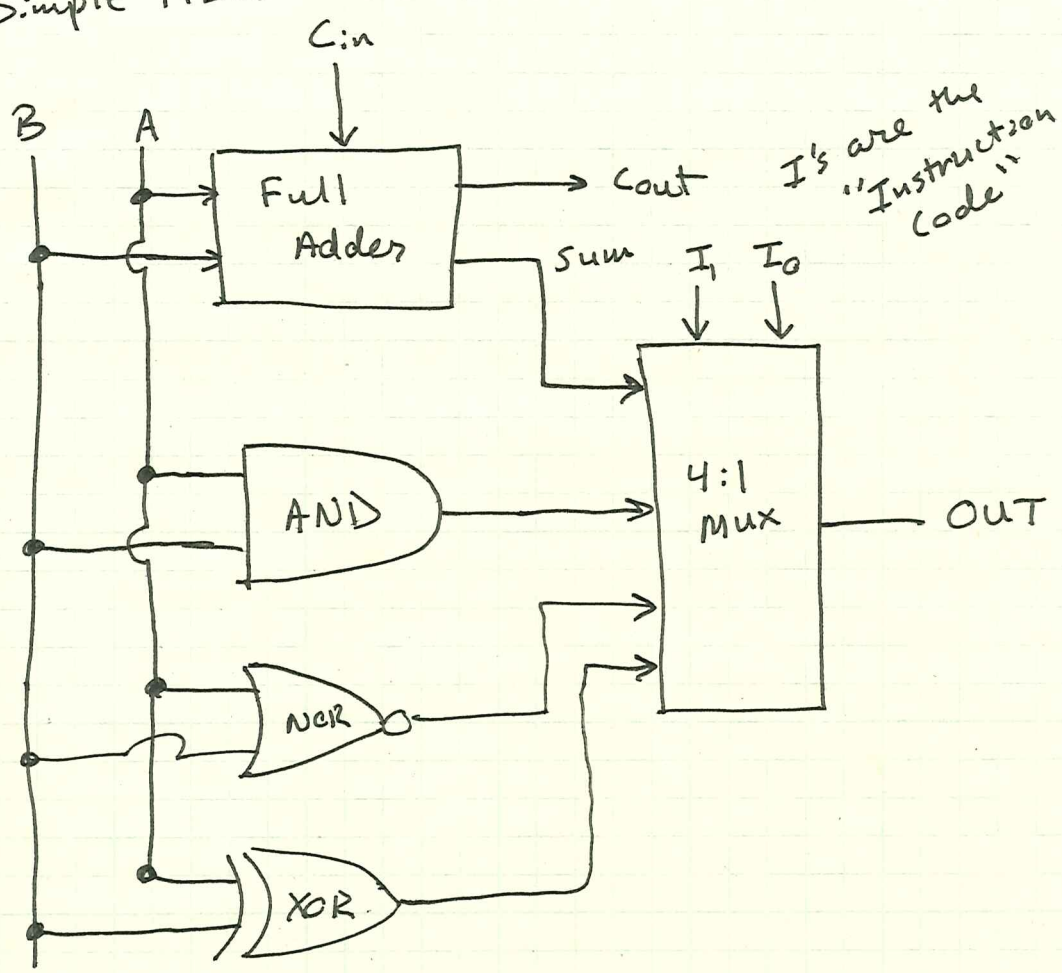 Simple
Cin
B
A
Full
Adder
Cout
I's are the
"Instruction
Code"
Sum
I₁
I₀
4:1
MUX
OUT
AND
NOR
XOR